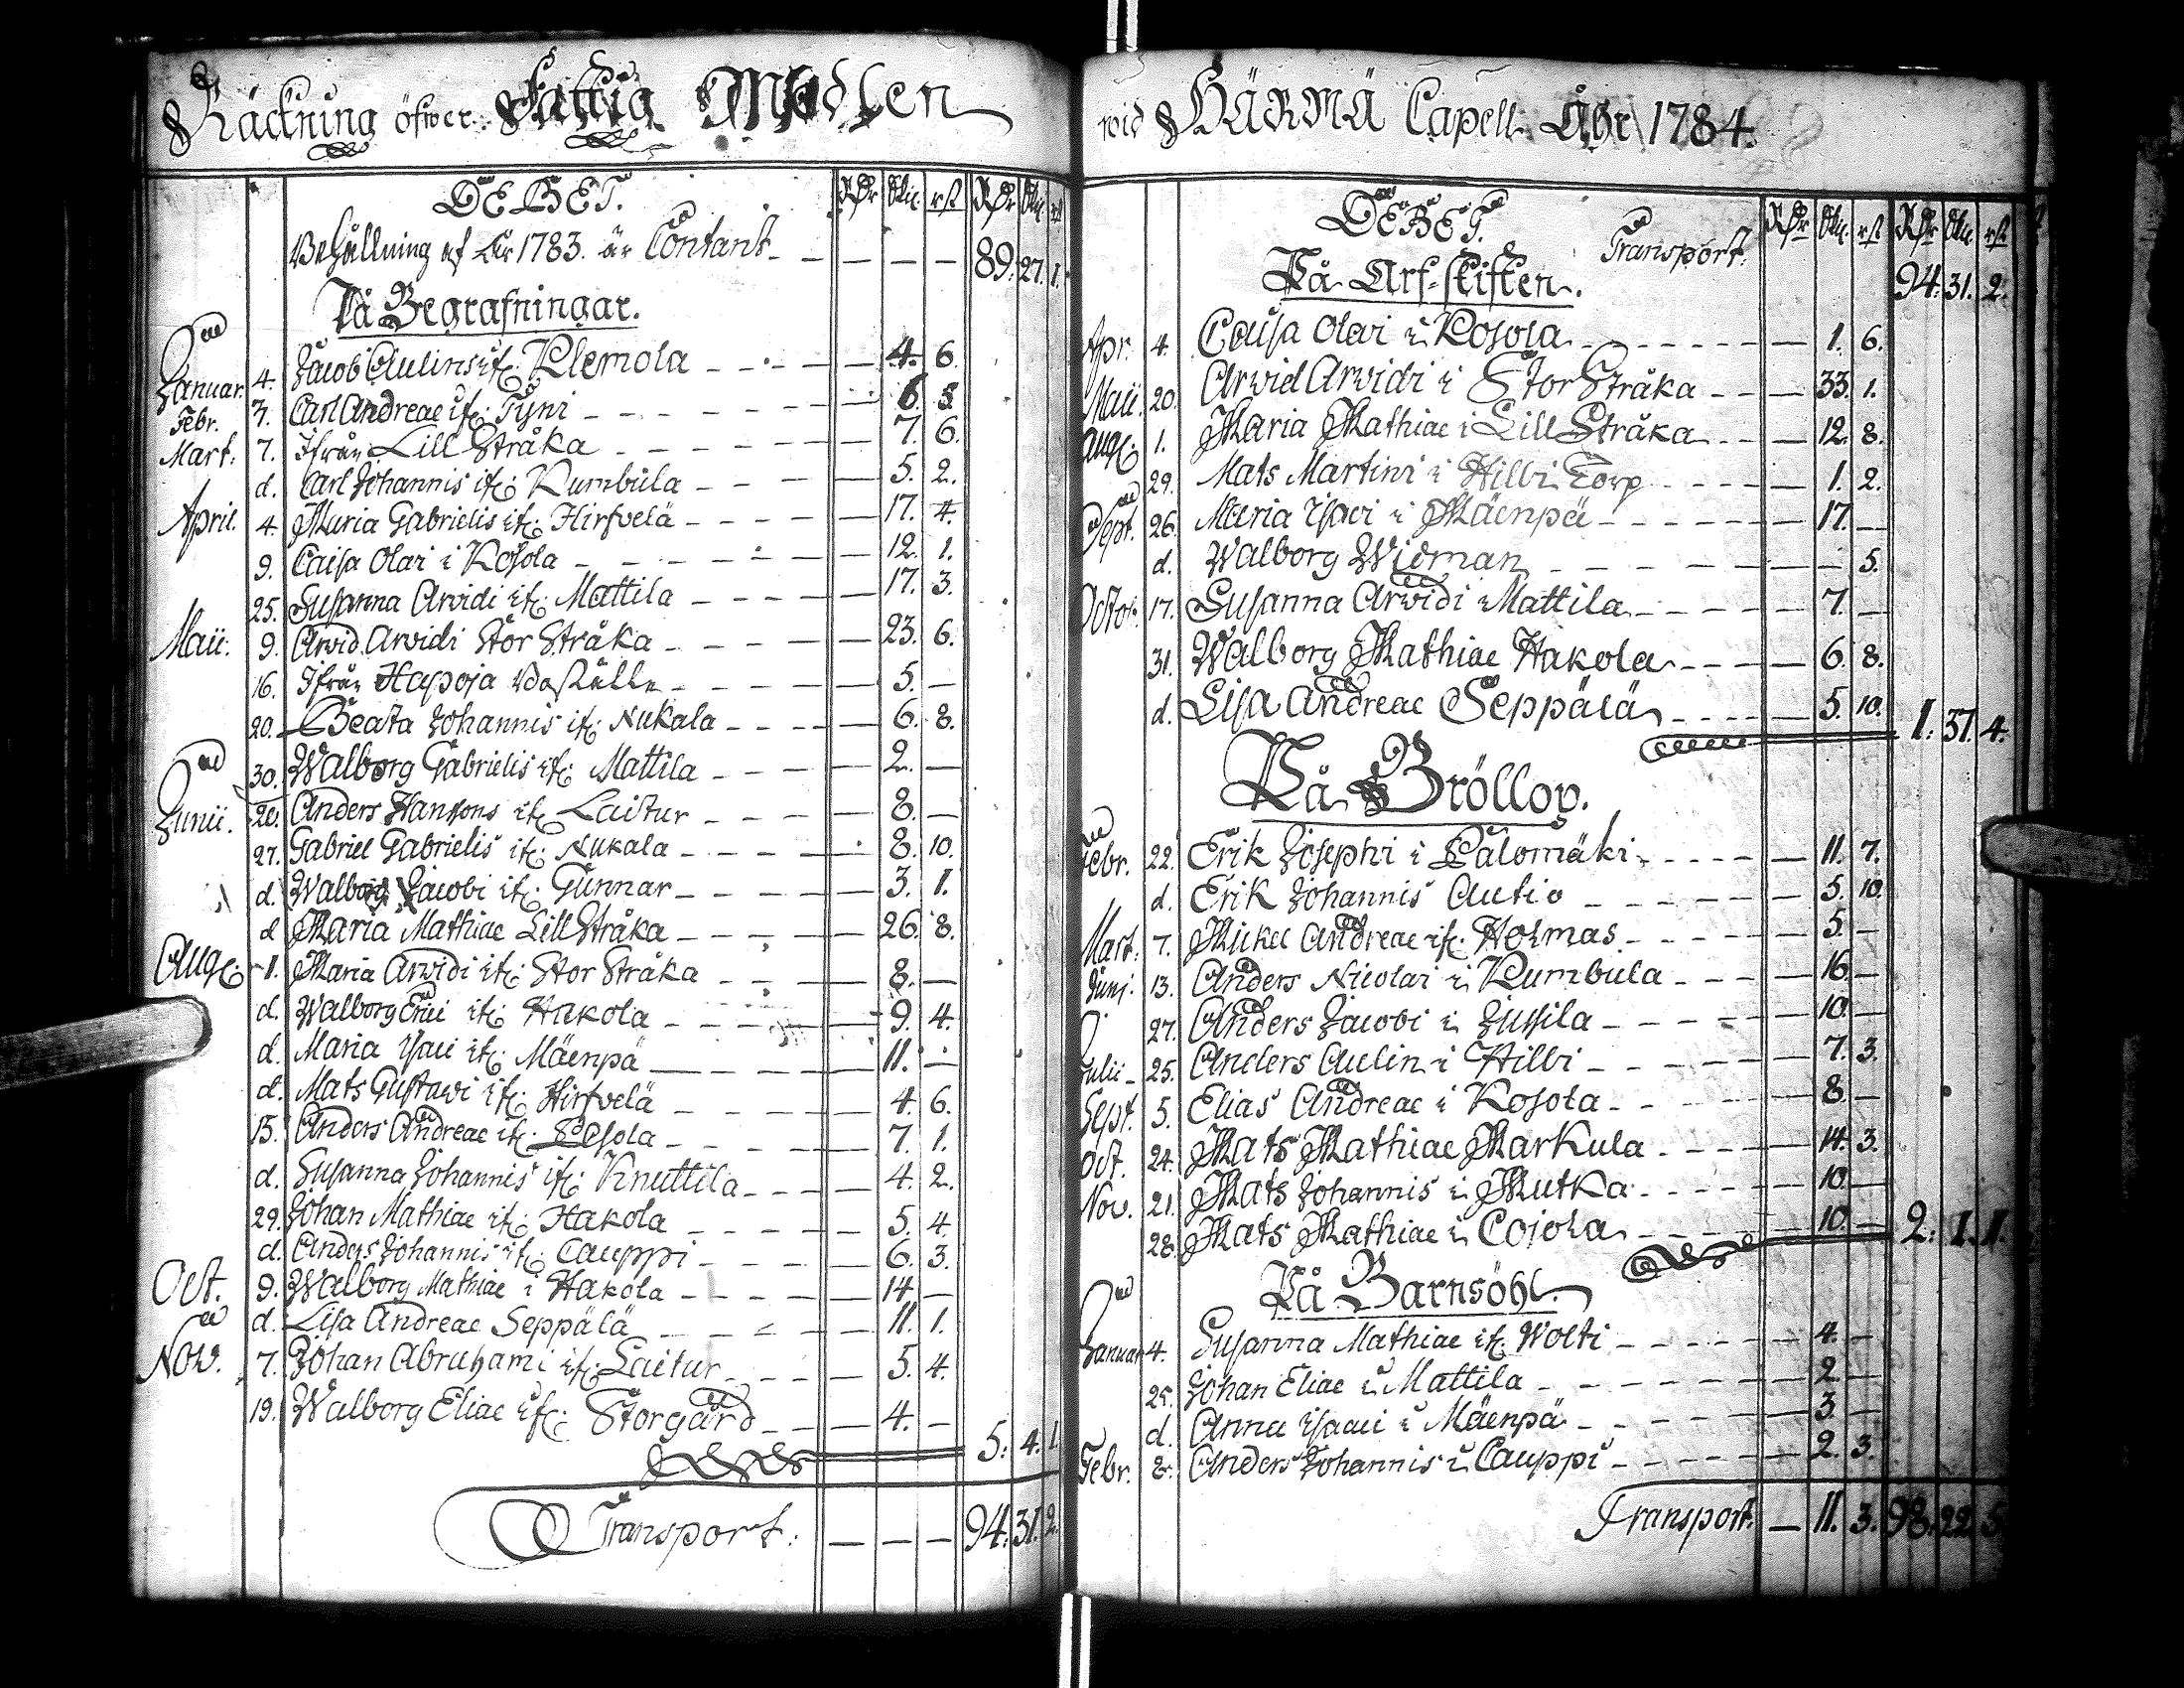 Räckning öfwer Fattig Medlen
DEBET. RDr Skil. rst RDr Skil. rst
Behållning af År 1783. är Contant 89. 27. 1.
På Begrafningar.
Januar. 4. Jacob Aulins if. Klemola 4. 6
Febr. 7. Carl Andreae if. Tyni 6. 3.
Mart. 7. Ifrån Lill Stråka 7. 6.
d. Carl Johannis if. Rumbula 5. 2.
April. 4. Maria Gabrielis if. Hirfvelä 17. 4.
9. Caisa Olai i Kosola 12. 1.
25. Susanna Arvidi if. Mattila 17. 3.
Maii. 9. Arvid Arvidi Stor Stråka 23. 6.
16. Ifrån Hapoja Boställe 5. —
20. Beata Johannis if. Nukala 6. 8.
30. Walborg Gabrielis if. Mattila 2. —
Junii. 20. Anders Hanssons if. Laitur 8. —
27. Gabriel Gabrielis if. Nukala 8. 10.
d. Walborg Jacobi if. Gunnar 3. 1.
d Maria Mathiae Lill Stråka 26. 8.
Aug. 1. Maria Arvidi if. Stor Stråka 8. —
d. Walborg Erici if. Hakola 9. 4.
d. Maria Isaci if. Mäenpä 11. —
d. Mats Gustavi if. Hirfvelä 4. 6.
15. Anders Andreae if. 7. 1.
d. Susanna Johannis if. Knuttila 4. 2.
29. Johan Mathiae if. Hakola 5. 4.
d. Anders Johannis if. Cauppi 6. 3.
Oct. 9. Walborg Mathiae i Hakola 14 —
d. Lisa Andreae Seppälä 11. 1.
Nov. 7. Johan Abrahami if. Laitur 5. 4.
19. Walborg Eliae if. Storgård 4. — 5. 4. 1.
Transport. — — — 94. 31. 2.
wid HÄRMÄ Capell. Åhr 1784.
DEBET. RDr Skil. rst RDr Skil. rst
Transport. 94. 31. 2.
På Arf-skiften.
Apr. 4. Caisa Olai i Kosola 1. 6.
Maii. 20. Arvid Arvidi i Stor Stråka 33. 1.
Aug. 1. Maria Mathiae i Lill Stråka 12. 8.
29. Mats Martini i Hilbi Torp 1. 2.
Sept. 26. Maria Isaci i Mäenpä 17. —
d. Walborg Widman — 5.
Octob. 17. Susanna Arvidi Mattila 7. —
31. Walborg Mathiae Hakola 6. 8.
d. Lisa Andreae Seppälä 5. 10. 1. 37. 4.
På Bröllop.
Febr. 22. Erik Josephi i Palomäki 11. 7.
d. Erik Johannis Autio 5. 10.
Mart. 7. Mickel Andreae if. Holmas 5. —
Junj. 13. Anders Nicolai i Rumbula 16. —
27. Anders Jacobi i Jussila 10. —
Julii 25. Anders Aulin i Hilbi 7. 3.
Sept. 5. Elias Andreae i Kosola 8. —
Oct. 24. Mats Mathiae Markula 14. 3.
Nov. 21. Mats Johannis i Mutka 10. —
28. Mats Mathiae i Cojola 10. — 2. 1. 11.
På Barnsöhl.
Januar. 4. Susanna Mathiae if. Wolti 4. —
25. Johan Eliae i Mattila 2. —
d. Anna Isaaci i Mäenpä 3. —
Febr. 8. Anders Johannis i Cauppi 2. 3.
Transport. — 11. 3. 98. 22. 5